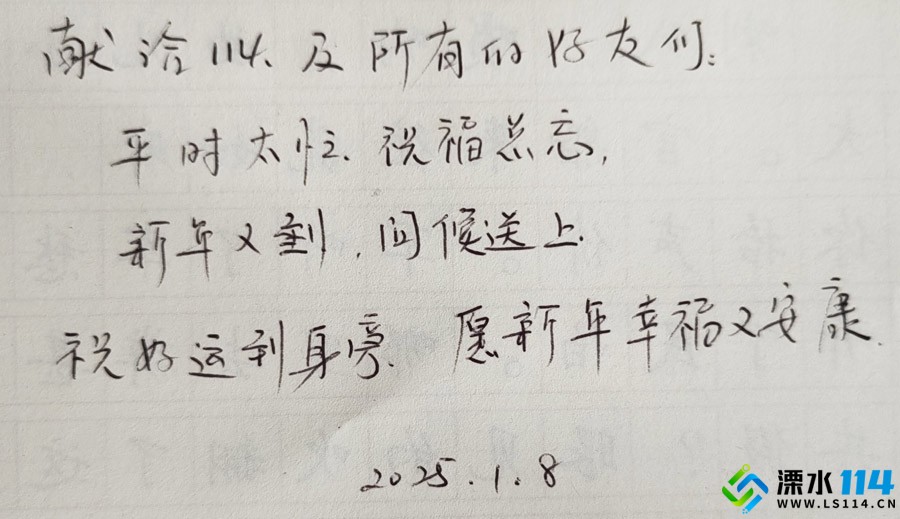 献给114、及所有的好友们:
平时太忙、祝福总忘,
新年又到,问候送上.
祝好运到身旁. 愿新年幸福又安康.
2025.1.8
溧水114
WWW.LS114.CN